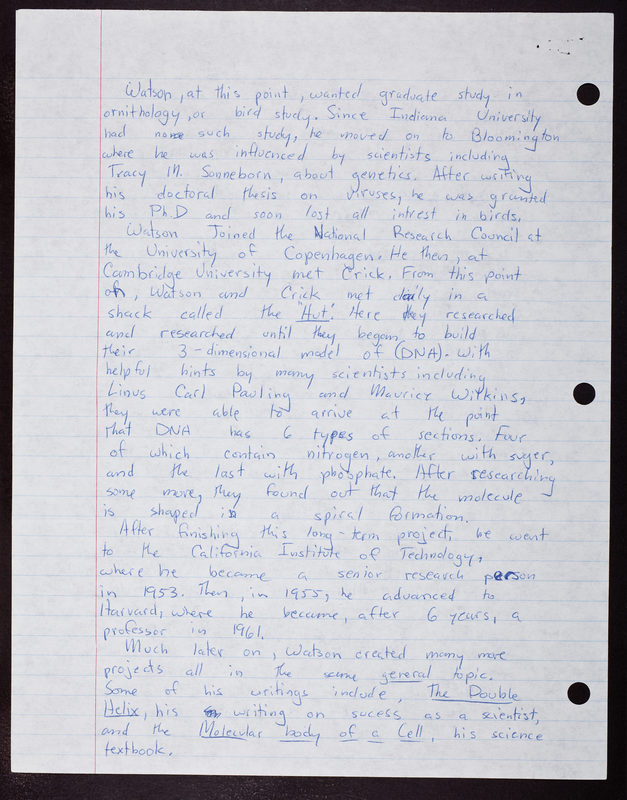 Watson, at this point, wanted graduate study in
ornithology, or bird study. Since Indiana University
had none such study, he moved on to Bloomington
where he was influenced by scientists including
Tracy M. Sonneborn, about genetics. After writing
his doctoral thesis on viruses, he was granted
his Ph.D and soon lost all intrest in birds.
Watson Joined the National Research Council at
the University of Copenhagen. He then, at
Cambridge University met Crick. From this point
on, Watson and Crick met daily in a
shack called the "Hut". Here they researched
and researched until they began to build
their 3-dimensional model of (DNA). With
helpful hints by many scientists including
Linus Carl Pauling and Maurice Wilkins,
they were able to arrive at the point
that DNA has 6 types of sections. Four
of which contain nitrogen, another with suger,
and the last with phosphate. After researching
some more, they found out that the molecule
is shaped in a spiral formation.
After finishing this long-term project, he went
to the California Institute of Technology,
where he became a senior research person
in 1953. Then, in 1955, he advanced to
Harvard, where he became, after 6 years, a
professor in 1961.
Much later on, Watson created many more
projects all in the same general topic.
Some of his writings include, The Double
Helix, his writing on sucess as a scientist,
and the Molecular body of a Cell, his science
textbook.